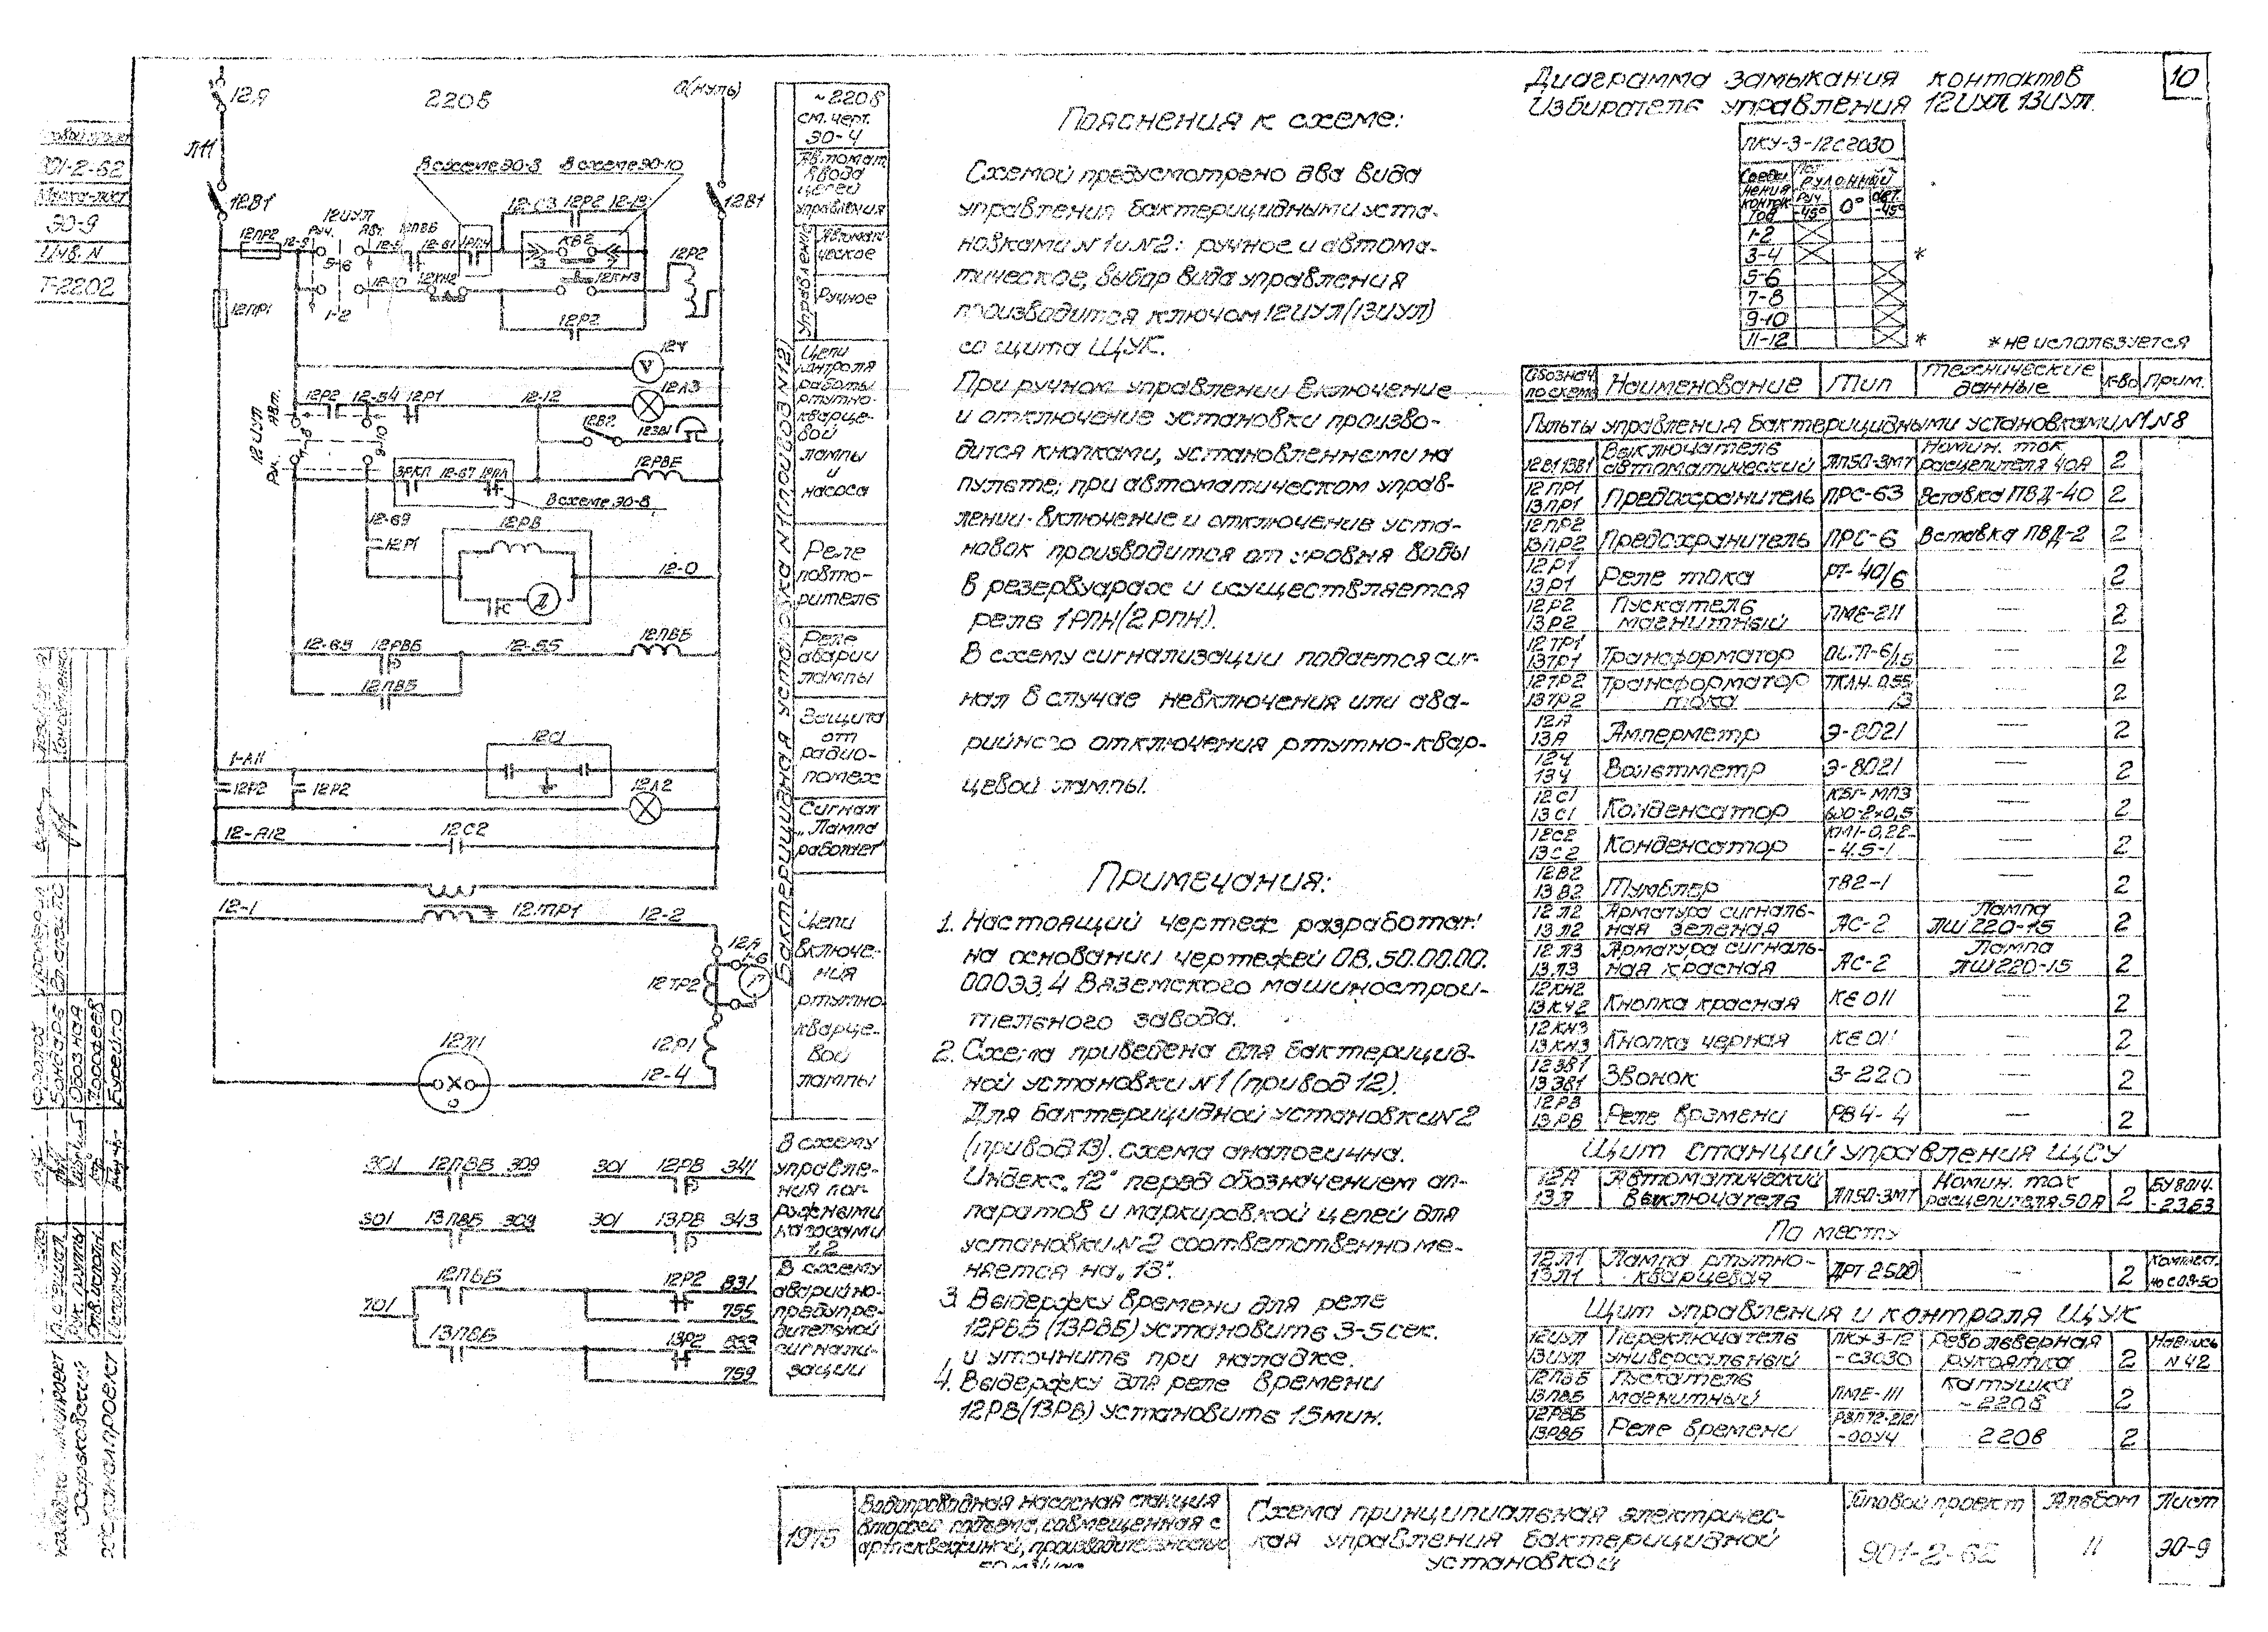 10
901-2-62
ЭО-9
Инв. N
Т-2202
12А
220в
0(нуль)
Л11
12В1
12В1
В схеме ЭО-3
В схеме ЭО-10
12-С3 12Р2 12-13
12ПР2
12ИУП
Руч.
Авт.
12ПВБ
12-61
КВ2
12Р2
5-6
12-10
12КН2
12КН3
12ПР1
1-2
12Р2
12V
V
12Л3
12Р2 12-54 12Р1
12-12
12ИУП
Авт.
Руч.
7-8
9-10
12В2
12ЗВ1
3РКП 12-67
12РВБ
В схеме ЭО-8
12-69
12Р1
12РВ
Д
12-0
12-65 12РВБ
12-55
12ПВБ
12ПВБ
1-А11
12С1
12Р2
12Р2
12Л2
12-А12
12С2
12-1
12ТР1
12-2
12А
12ТР2
12Р1
12-4
12Л1
301 12ПВБ 309
301 12РВ 341
301 13ПВБ 309
301 13РВ 343
701
12ПВБ
12Р2 831
755
13ПВБ
13Р2 833
759
Бактерицидная установка N1 (привод N12)
~220в
см. черт.
ЭО-4
Автомат
ввода
цепей
управления
Управление
Автомати-
ческое
Ручное
Цепи
контроля
работы
ртутно-
кварце-
вой
лампы
и
насоса
Реле
повто-
ритель
Реле
аварии
лампы
Защита
от
радио-
помех
Сигнал
"Лампа
работает"
Цепи
включе-
ния
ртутно
кварце-
вой
лампы
В схему
управле-
ния пог-
ружными
насосами
1,2
В схему
аварийно-
предупре-
дительной
сигнали-
зации
Пояснения к схеме:
Схемой предусмотрено два вида
управления бактерицидными уста-
новками N1 и N2: ручное и автома-
тическое, выбор вида управления
производится ключом 12ИУП(13ИУП)
со щита ЩУК.
При ручном управлении включение
и отключение установки произво-
дится кнопками, установленными на
пульте; при автоматическом управ-
лении-включение и отключение уста-
новок производится от уровня воды
в резервуарах и осуществляется
реле 1РПН(2РПН).
В схему сигнализации подается сиг-
нал в случае невключения или ава-
рийного отключения ртутно-квар-
цевой лампы.
Примечания:
1. Настоящий чертеж разработан
на основании чертежей 08.50.00.00.
000Э3,4 Вяземского машинострои-
тельного завода.
2. Схема приведена для бактерицид-
ной установки N1 (привод 12).
Для бактерицидной установки N2
(привод 13). схема аналогична.
Индекс „12" перед обозначением ап-
паратов и маркировкой цепей для
установки N2 соответственно ме-
няется на „13".
3. Выдержку времени для реле
12РВБ (13РВБ) установить 3-5сек.
и уточнить при наладке.
4. Выдержку для реле времени
12РВ(13РВ) установить 15мин.
Диаграмма замыкания контактов
Избирателя управления 12ИУП 13ИУП.
ПКУ-3-12С2030
Соеди-
нения
контак-
тов
Руч. -45° 0° Авт. +45°
1-2
3-4 *
5-6
7-8
9-10
11-12 *
* не используется
Обознач. по схеме Наименование Тип Технические данные К-во Прим.
Пульты управления бактерицидными установками N1, N8
12В1 13В1 Выключатель автоматический АП50-3МТ Номин. ток расцепителя 40А 2
12ПР1 13ПР1 Предохранитель ПРС-63 Вставка ПВД-40 2
12ПР2 13ПР2 Предохранитель ПРС-6 Вставка ПВД-2 2
12Р1 13Р1 Реле тока РТ-40/6 — 2
12Р2 13Р2 Пускатель магнитный ПМЕ-211 — 2
12ТР1 13ТР1 Трансформатор — 2
12ТР2 13ТР2 Трансформатор тока — 2
12А 13А Амперметр Э-8021 — 2
12V 13V Вольтметр Э-8021 — 2
12С1 13С1 Конденсатор КБГ-МПЗ 600-2х0,5 — 2
12С2 13С2 Конденсатор — 2
12В2 13В2 Тумблер ТВ2-1 — 2
12Л2 13Л2 Арматура сигналь- ная зеленая АС-2 Лампа ПШ 220-15 2
12Л3 13Л3 Арматура сигналь- ная красная АС-2 Лампа ПШ 220-15 2
12КН2 13КУ2 Кнопка красная КЕ 011 — 2
12КН3 13КН3 Кнопка черная КЕ 011 — 2
12ЗВ1 13ЗВ1 Звонок З-220 — 2
12РВ 13РВ Реле времени РВ4-4 — 2
Щит станций управления ЩСУ
12А 13А Автоматический выключатель АП50-3МТ Номин. ток расцепителя 50А 2 БУ8014. -23Б3
По месту
12Л1 13Л1 Лампа ртутно- кварцевая ДРТ 2500 — 2 Комплект- но с 08-50
Щит управления и контроля ЩУК
12ИУП 13ИУП Переключатель универсальный ПКУ-3-12 -С3030 Револьверная рукоятка 2 Надпись N 42
12ПВБ 13ПВБ Пускатель магнитный ПМЕ-111 катушка ~220в 2
12РВБ 13РВБ Реле времени -00У4 220в 2
1975
Водопроводная насосная станция
второго подъема, совмещенная с
артскважиной, производительностью
Схема принципиальная электричес-
кая управления бактерицидной
установкой
Типовой проект
901-2-62
Альбом
II
Лист
ЭО-9
Бондарь
Обозная
Дорофеев
Бурейко
Рук. группы
Отв. исполн.
Исполнит.
Харьковский